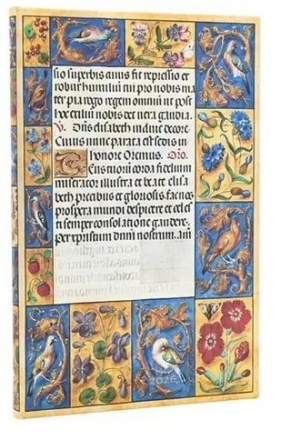 sio superbis anus fit repressio et
robur humilũ qui pro nobis ma
ter pia rogo regem omniũ ut post
hoc exiliũ nobis det vera gaudia.
V. Dñs elisabeth induit decore
Cuius nunc parata est sedes in
honore Oremus. Oro.
Tuorum corda fidelium
miserator illustra et beate elisa
beth precibus et gloriosis fac nos
prospera mundi despicere et celes
ti semper consolatione gaudere.
per xpristum dnm nostrum. am
2026